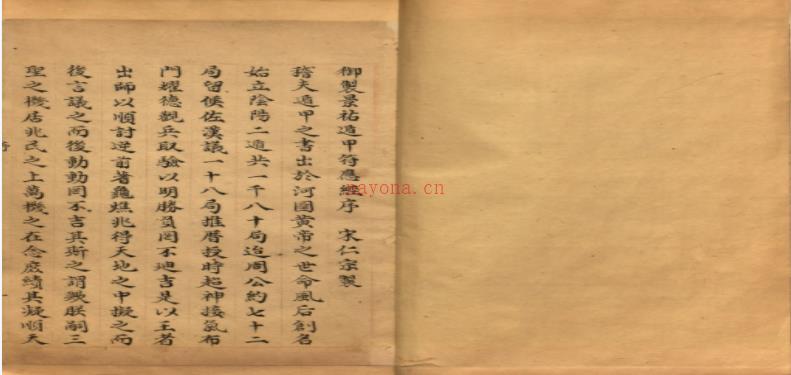 御製景祐遁甲符應經序 宋仁宗製
稽夫遁甲之書出於河圖黄帝之世命風后創名
始立陰陽二遁共一千八十局迨周公約七十二
局留侯佐漢議一十八局推曆授時超神接氣布
門燿德觀兵取驗以明勝負罔不迪吉是以王者
出師以順討逆前著龜燋兆得天地之中擬之而
後言議之而後動動罔不吉其斯之謂歟朕嗣三
聖之機居兆民之上萬機之在念庶績其凝順天
nayona.cn